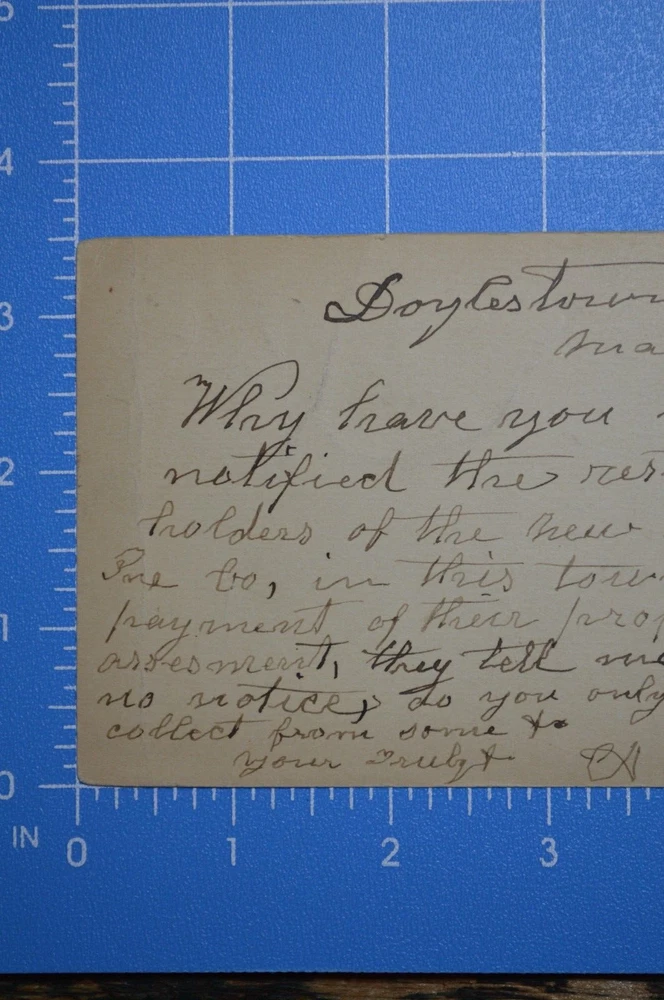 5
4
3
2
1
0
IN
0 1 2 3
Doylestown
Ma
Why have you
notified the res
holders of the new
Ine Co, in this tow
payment of their prop
assesment, they tell me
no notice, do you only
collect from some &
your Truly